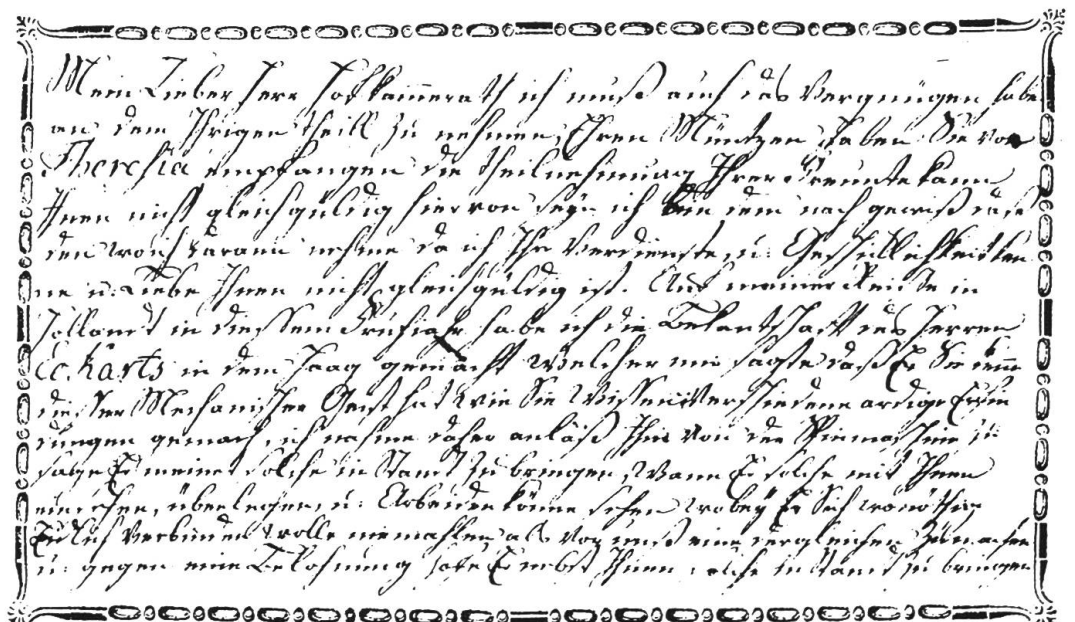 Mein Lieber Herr Hofkammerath ich muß auch das Vergnügen habe
an dem Ihrigen theill zu nehmen, Ihren Müntzen haben Sie von
Theresia empfangen die theilnehmung Ihrer Freunte kann
Ihnen nicht gleichgüldig hiervon seyn ich bin dem nach gewiß daß
den ich daran nehme da ich Ihr Verdienste u: Geschicklichkeit ken
ne u: Liebe Ihnen nicht gleichgüldig ist. Auf meiner Reise in
Holland in diessem Frühjahr habe ich die Bekantschafft des Herren
Eckharts in dem Haag gemacht Welcher mir sagte daß Er Sie kenne
dieser Mechanischer Geist hat wie Sie Wissen Verschiedene ardige Erfin
dungen gemach, ich nahme daher anlaß Ihm Von der Spinmaschine zu
sage Er meinet solche in Stand zu bringen, Wann Er solche mit Ihnen
einsehen, überlegen, u: Arbeiden könne sehen wobey Er Sich
Eydlich Verbinden wolle niemahlen als eine dergleichen zu machen
u: gegen eine Belohnung Ihnen solche in Stand zu bringen